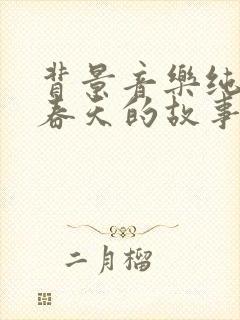 背景音樂纯
春天的故事
二月榴